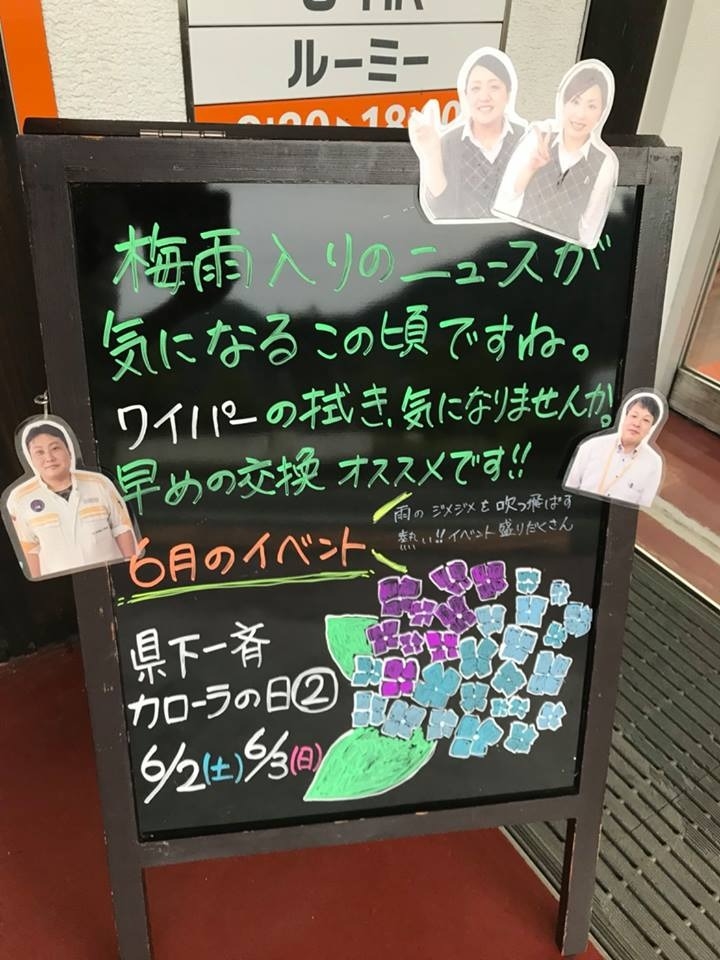 ルーミー
梅雨入りのニュースが
気になるこの頃ですね。
ワイパーの拭き、気になりませんか。
早めの交換 オススメです!!
雨の ジメジメを 吹っ飛ばす
熱い!!イベント 盛りだくさん
6月のイベント
県下一斉
カローラの日②
6/2(土)6/3(日)